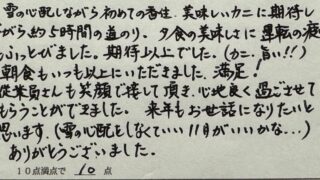 雪の心配しながら初めての香住。美味しいカニに期待し
がら約5時間の道のり、夕食の美味しさに運転の疲
ふっとびました。期待以上でした。(カニ、旨い!!)
朝食もいつも以上にいただきました。満足!
従業員さんも笑顔で接して頂き、心地良く過ごさせて
もらうことができました。来年もお世話になりたいと
思います。(雪の心配をしなくていい11月がいいかな…)
ありがとうございました。
10点満点で 10 点